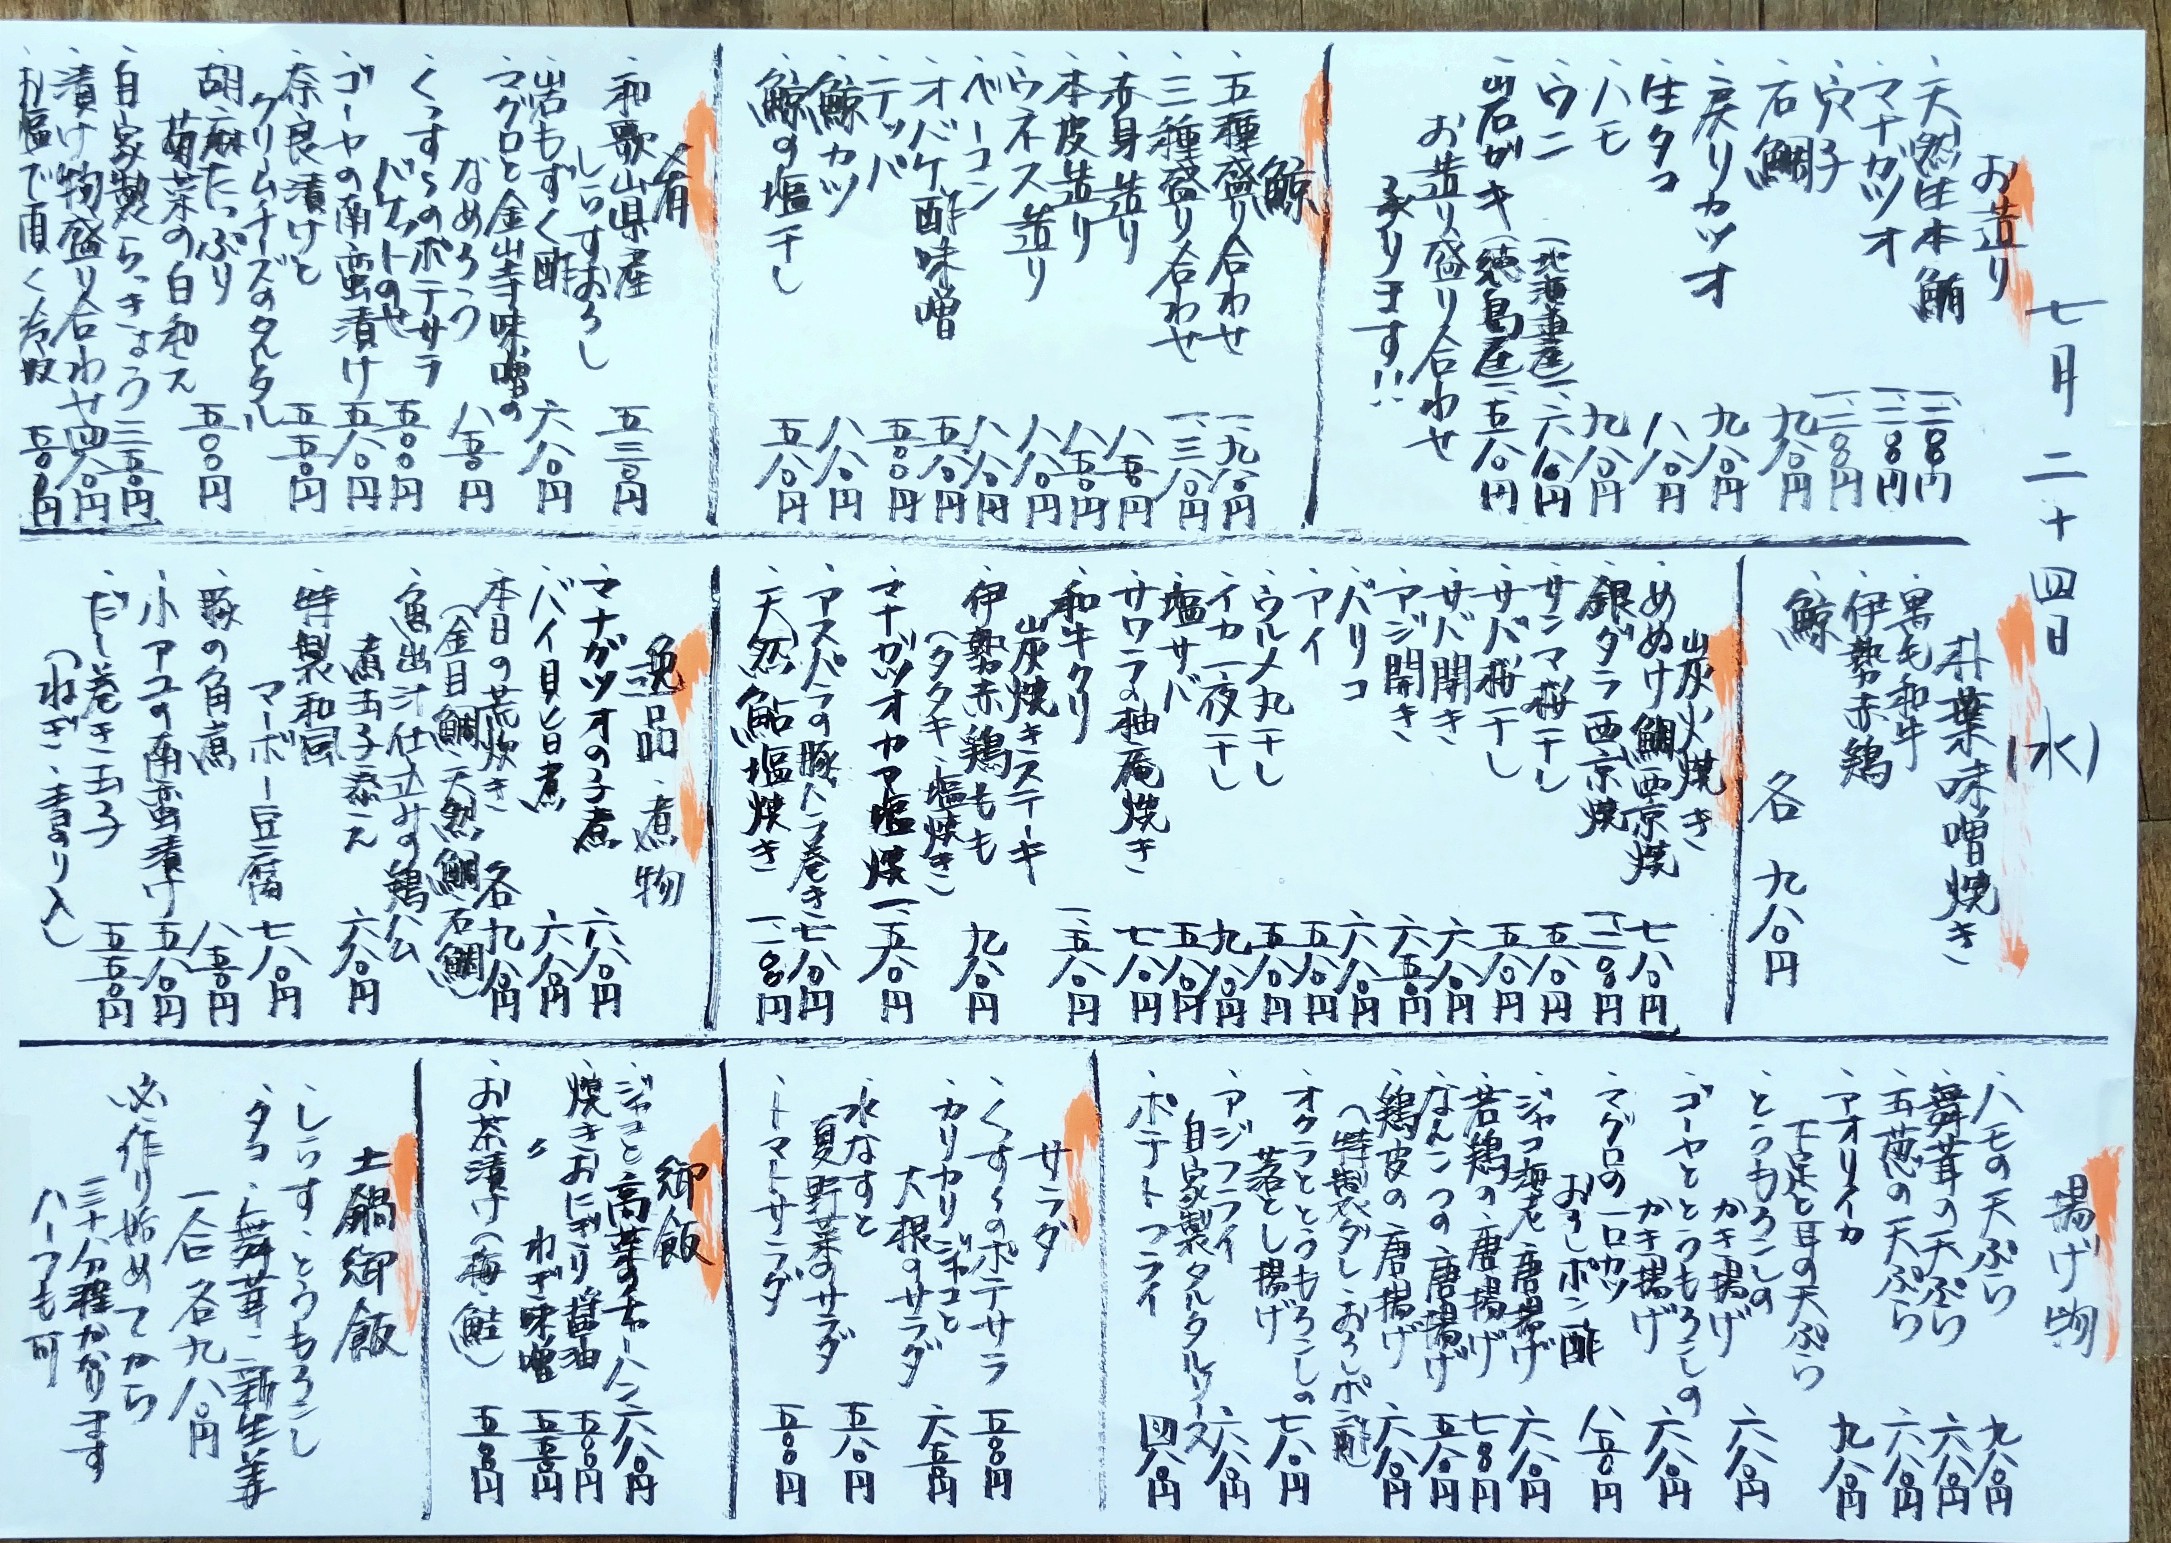 七月二十四日(水)
お造り
、天然生本鮪 一、二八〇円
、マナガツオ 一、二八〇円
、穴子 一、二八〇円
、石鯛 九八〇円
、戻りカツオ 九八〇円
、生タコ 八八〇円
、ハモ 九八〇円
、ウニ(北海道産) 一、六八〇円
、岩ガキ(徳島産) 一、五八〇円
お造り盛り合わせ
承ります!!
鯨
、五種盛り合わせ 一、九八〇円
、三種盛り合わせ 一、三八〇円
、赤身造り 八五〇円
、本皮造り 八五〇円
、ウネス造り 八八〇円
、ベーコン 八八〇円
、オバケ酢味噌 五八〇円
、テッパ 五〇〇円
、鯨カツ 八八〇円
、鯨の塩干し 五八〇円
肴
、和歌山県産
しらすおろし 五三〇円
、岩もずく酢 六八〇円
、マグロと金山寺味噌の
なめろう 八五〇円
、くっすらのポテサラ
バケットのせ 五〇〇円
、ゴーヤの南蛮漬け 五八〇円
、奈良漬けと
クリームチーズのタルタル 五五〇円
、胡麻たっぷり
菊菜の白和え 五〇〇円
、自家製らっきょう 三五〇円
、漬け物盛り合わせ 四八〇円
、お塩で頂く冷奴 五〇〇円
朴葉味噌焼き
、黒毛和牛
、伊勢赤鶏
、鯨
各 九八〇円
炭火焼き
、めぬけ鯛西京焼 七八〇円
、銀ダラ西京焼 一、二八〇円
、サンマ桜干し 五八〇円
、サバ桜干し 五八〇円
、サバ開き 六八〇円
、アジ開き 六五〇円
、バリコ 六八〇円
、アイ 五八〇円
、ウルメ丸干し 五八〇円
、イカ一夜干し 九八〇円
、塩サバ 五八〇円
、サワラの柚庵焼き 七八〇円
、和牛クリ
炭焼きステーキ 一、五八〇円
、伊勢赤鶏もも
(タタキ・塩焼き) 九八〇円
、マナガツオカマ塩焼 一、五八〇円
、アスパラの豚バラ巻き 七八〇円
、天然鮎塩焼き 一、二八〇円
逸品・煮物
、マナガツオの子煮 六八〇円
、バイ貝旨煮 六八〇円
、本日の荒炊き 各九八〇円
(金目鯛、天然鯛、石鯛)
、魚出汁仕立みの鶏ハム
煮玉子添え 六八〇円
、特製和風
マーボー豆腐 七八〇円
、豚の角煮 八五〇円
、小アユの南蛮漬け 五八〇円
、だし巻き玉子 五五〇円
(ねぎ・青のり入)
揚げ物
、ハモの天ぷら 九八〇円
、舞茸の天ぷら 六八〇円
、玉葱の天ぷら 六八〇円
、アオリイカ
下足と耳の天ぷら 九八〇円
、とうもろこしの
かき揚げ 六八〇円
、ゴーヤととうもろこしの
かき揚げ 六八〇円
、マグロの一口カツ
おろしポン酢 八五〇円
、ジャコ海老唐揚げ 六八〇円
、若鶏の唐揚げ 七八〇円
、なんこつの唐揚げ 五八〇円
、鶏皮の唐揚げ 六八〇円
(特製ダし・おろしポン酢)
、オクラととうもろこしの
落とし揚げ 七八〇円
、アジフライ
自家製タルタルソース 六八〇円
、ポテトフライ 四八〇円
サラダ
、くすらのポテサラ 五〇〇円
、カリカリジャコと
大根のサラダ 六五〇円
、水なすと
夏野菜のサラダ 五八〇円
、トマトサラダ 五〇〇円
御飯
、ジャコと高菜のチャーハン 六八〇円
、焼きおにぎり醤油 五〇〇円
、〃 ねぎ味噌 五五〇円
、お茶漬け(梅・鮭) 五〇〇円
土鍋御飯
、しらす、とうもろこし
、タコ、舞茸、新生姜
一合 各九八〇円
必作り始めてから
三十分程かかります
ハーフも可